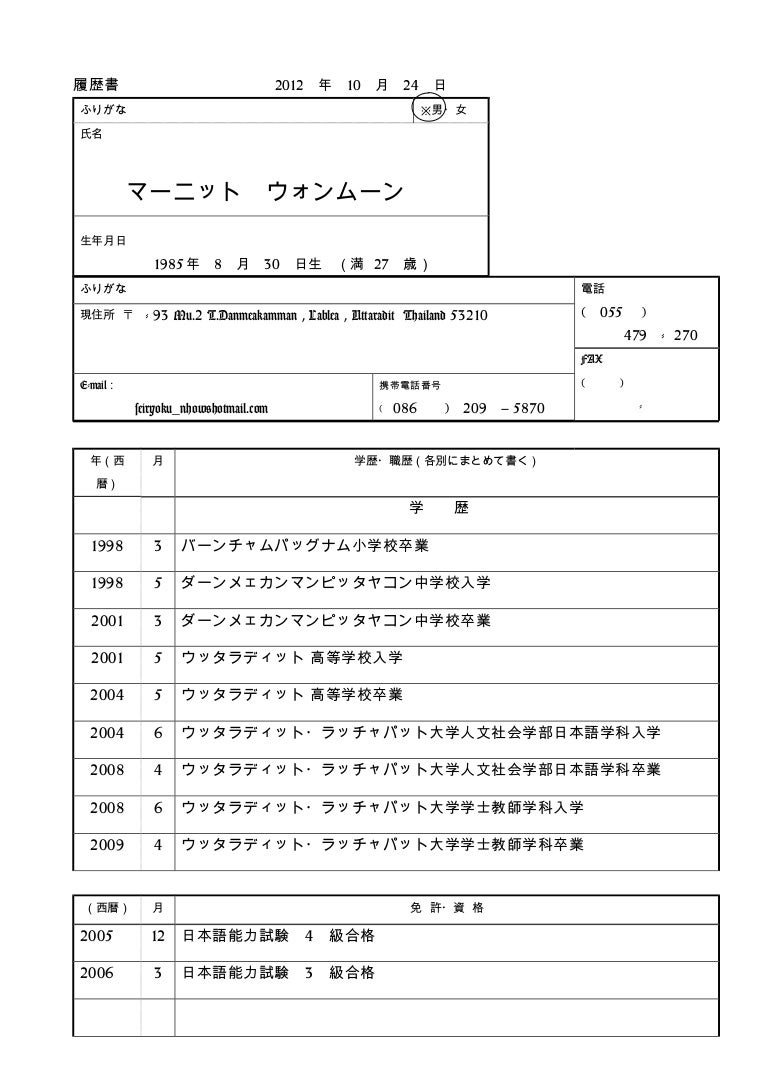 履歴書 2012 年 10 月 24 日
ふりがな ※男・女
氏名
マーニット ウォンムーン
生年月日
1985年 8 月 30 日生 (満 27 歳)
ふりがな
電話
現住所 〒 - 93 Mu.2 T.Danmeakamman , Lablea , Uttaradit Thailand 53210
( 055 )
479 - 270
FAX
( )
-
E-mail :
seiryoku_nhowshotmail.com
携帯電話番号
( 086 ) 209 – 5870
年(西暦) 月 学歴・職歴(各別にまとめて書く)
学 歴
1998 3 バーンチャムパッグナム小学校卒業
1998 5 ダーンメェカンマンピッタヤコン中学校入学
2001 3 ダーンメェカンマンピッタヤコン中学校卒業
2001 5 ウッタラディット 高等学校入学
2004 5 ウッタラディット 高等学校卒業
2004 6 ウッタラディット・ラッチャパット大学人文社会学部日本語学科入学
2008 4 ウッタラディット・ラッチャパット大学人文社会学部日本語学科卒業
2008 6 ウッタラディット・ラッチャパット大学学士教師学科入学
2009 4 ウッタラディット・ラッチャパット大学学士教師学科卒業
(西暦) 月 免 許・資 格
2005 12 日本語能力試験 4 級合格
2006 3 日本語能力試験 3 級合格